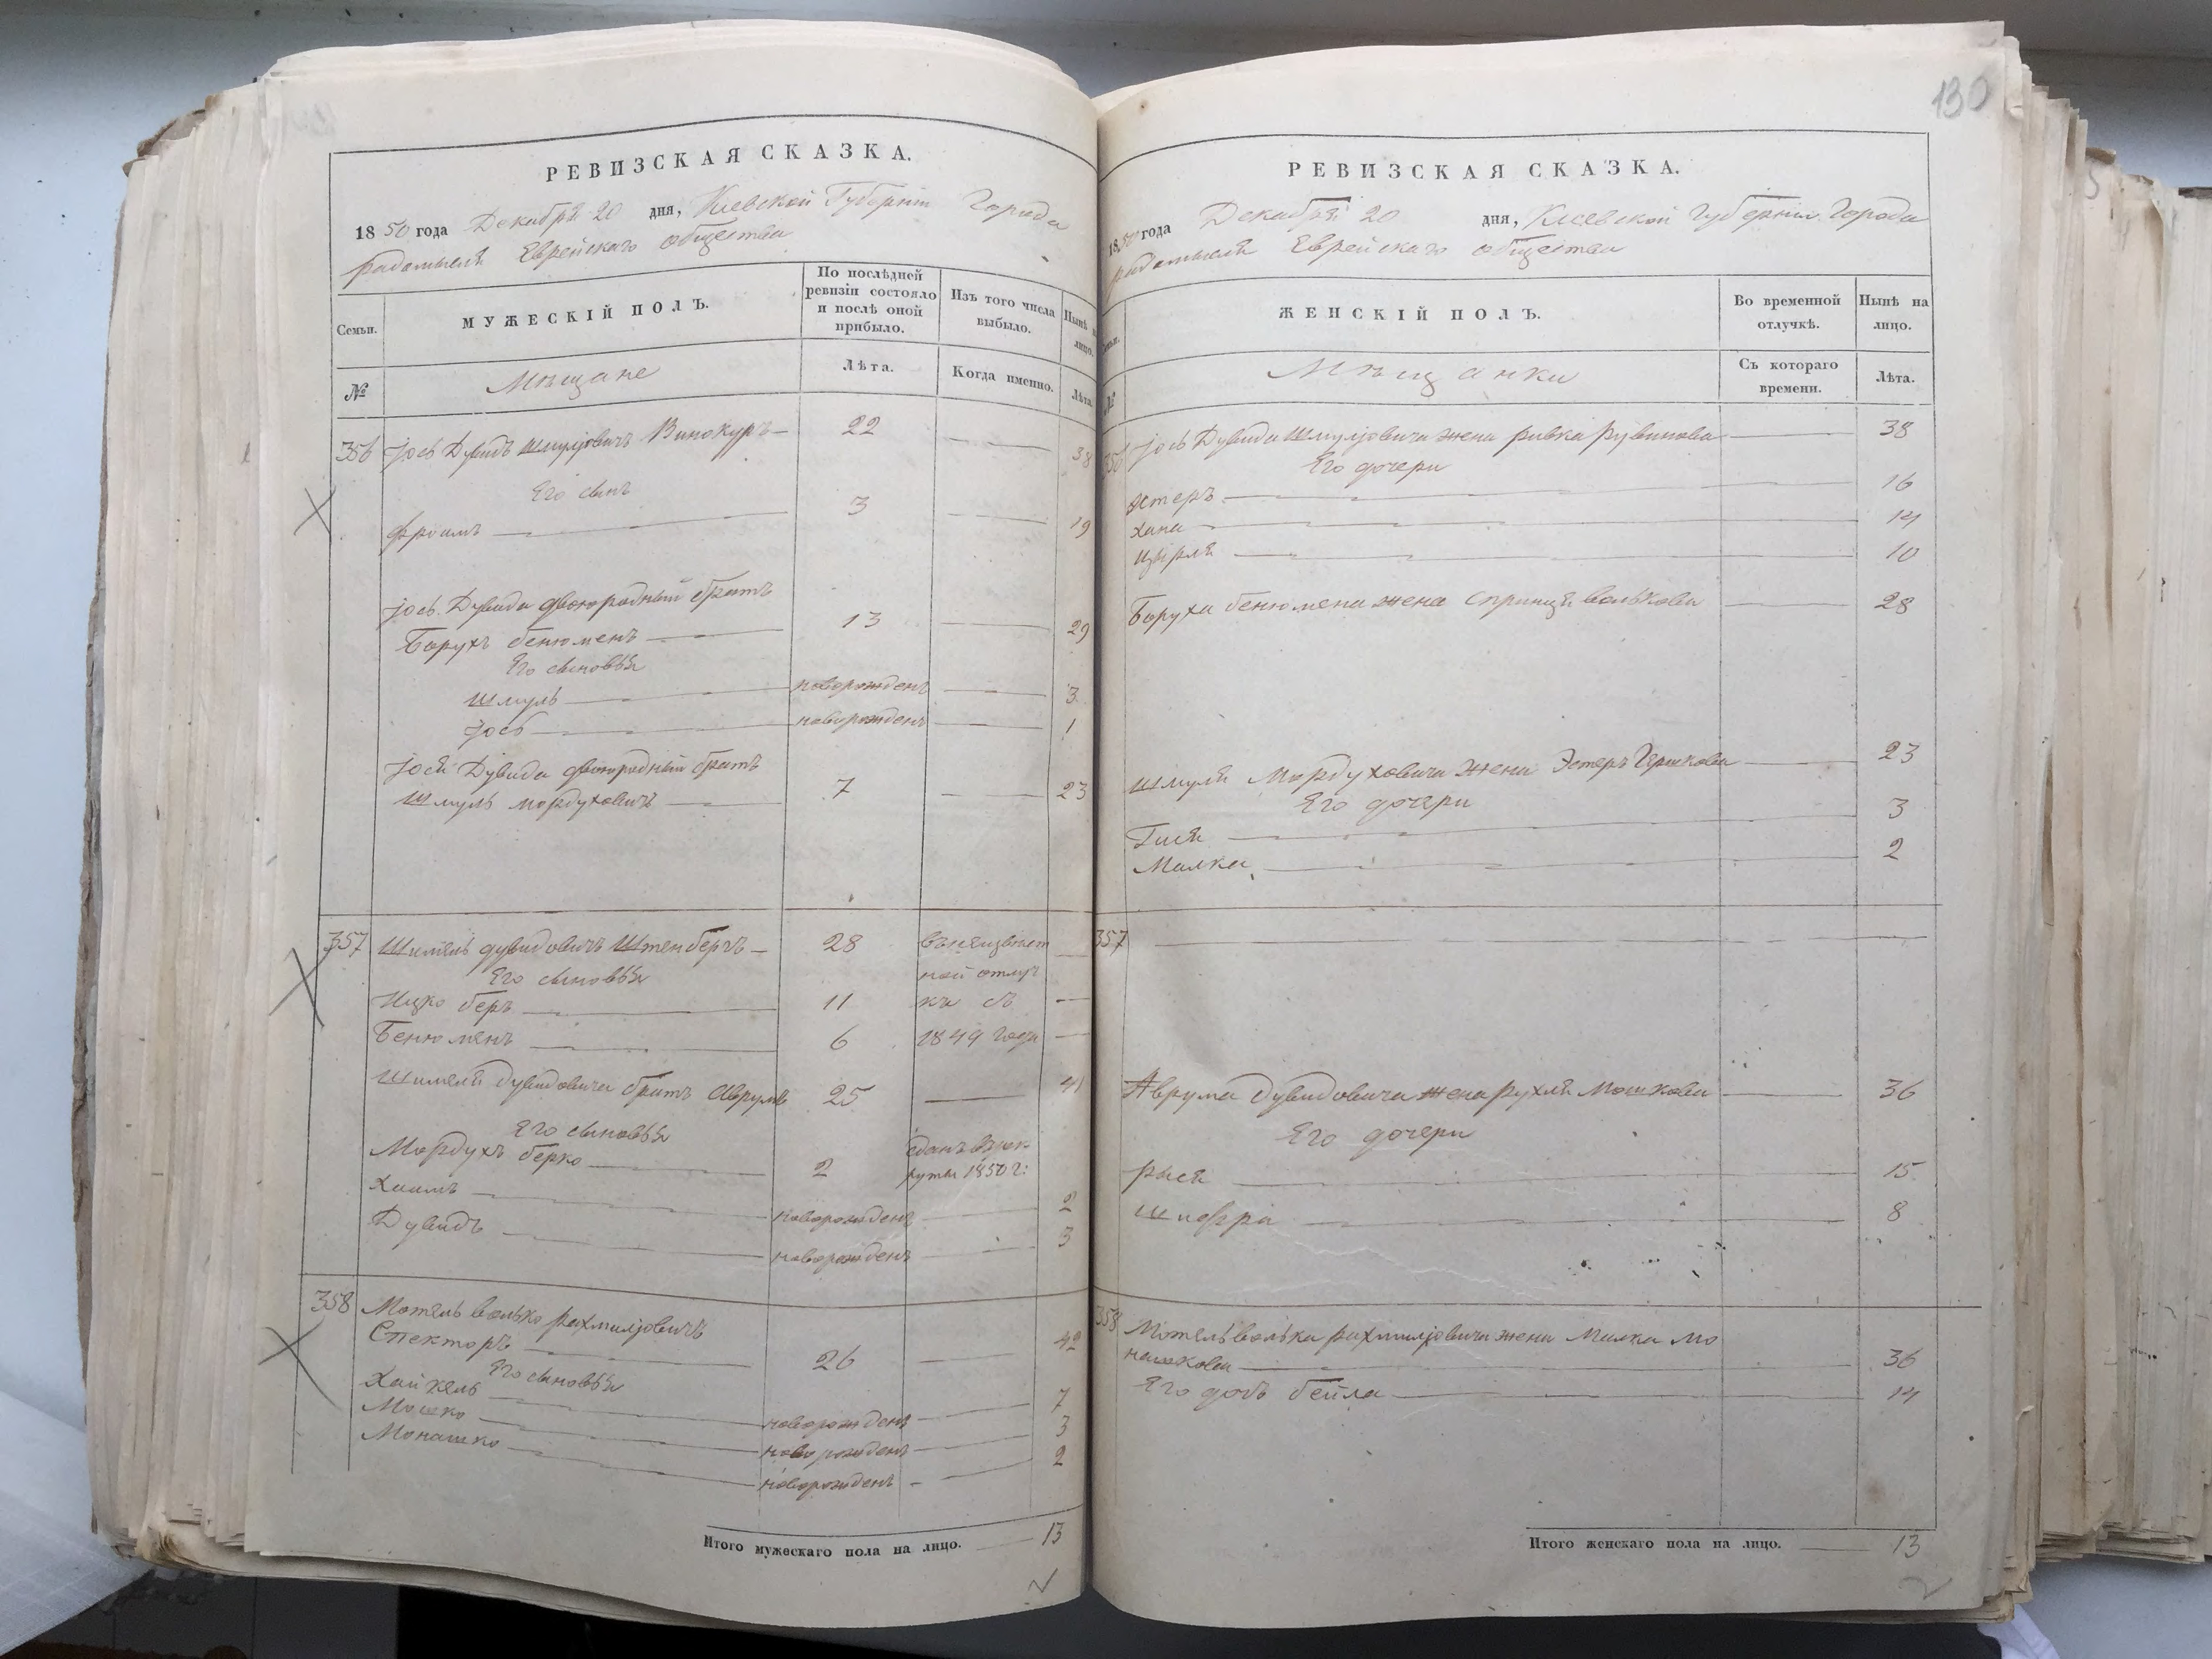 РЕВИЗСКАЯ СКАЗКА.
1850 года Декабря 20 дня, Киевской Губернiи Города
радомысля Еврейскаго общества
Семьи.
МУЖЕСКIЙ ПОЛЪ.
По послѣдней ревизiи состояло и послѣ оной прибыло.
Изъ того числа выбыло.
Нынѣ на лицо.
№
Мѣщане
Лѣта.
Когда именно.
Лѣта.
356 Jось Дувидъ Шмулjовичъ Винокуръ 22 38
Его сынъ
Фроимъ 3 19
Jось Дувида двоюродный братъ
Борухъ бенюменъ 13 29
Его сыновья
Шмуль новорожденъ 3
Jось новорожденъ 1
Jося Дувида двоюродный братъ
Шмуль мордуховичъ 7 23
357 Шимель дувидовичъ Штенбергъ 28 въ неизвѣст
Его сыновья ной отлуч
Ицко беръ 11 кѣ съ
Бенюменъ 6 1849 года
Шимеля дувидовича братъ Аврумъ 25 41
Его сыновья
Мордухъ берко 2 сданъ въ рек
руты 1850 г:
Хаимъ новорожденъ 2
Дувидъ новорожденъ 3
358 Мотель волько рахмилjовичъ
Спекторъ 26 42
Его сыновья
Хайкель новорожденъ 7
Мошко новорожденъ 3
Монашко новорожденъ 2
Итого мужескаго пола на лицо. 13
130
РЕВИЗСКАЯ СКАЗКА.
1850 года Декабря 20 дня, Киевской Губернiи Города
радомысля Еврейскаго общества
Семьи.
ЖЕНСКIЙ ПОЛЪ.
Во временной отлучкѣ.
Нынѣ на лицо.
№
Мѣщанки
Съ котораго времени.
Лѣта.
356 Jось Дувида Шмулjовича жена ривка рувинова 38
Его дочери
Эстеръ 16
Хана 14
Цырля 10
Боруха бенюмена жена спринця волькова 28
Шмуля Мордуховича жена Эстеръ Гершкова 23
Его дочери
Гися 3
Малка 2
357
Аврума Дувидовича жена рухля Мошкова 36
Его дочери
рыся 15
Шифра 8
358 Мотель волька рахмилjовича жена Малка Мо
нашкова 36
Его дочь бейла 14
Итого женскаго пола на лицо. 13